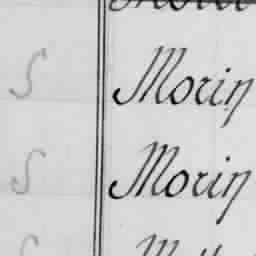 S Morin
S Morin